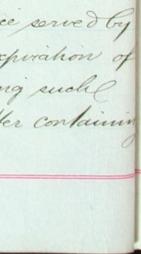 ce served by
xpiration of
ng such
ter containing